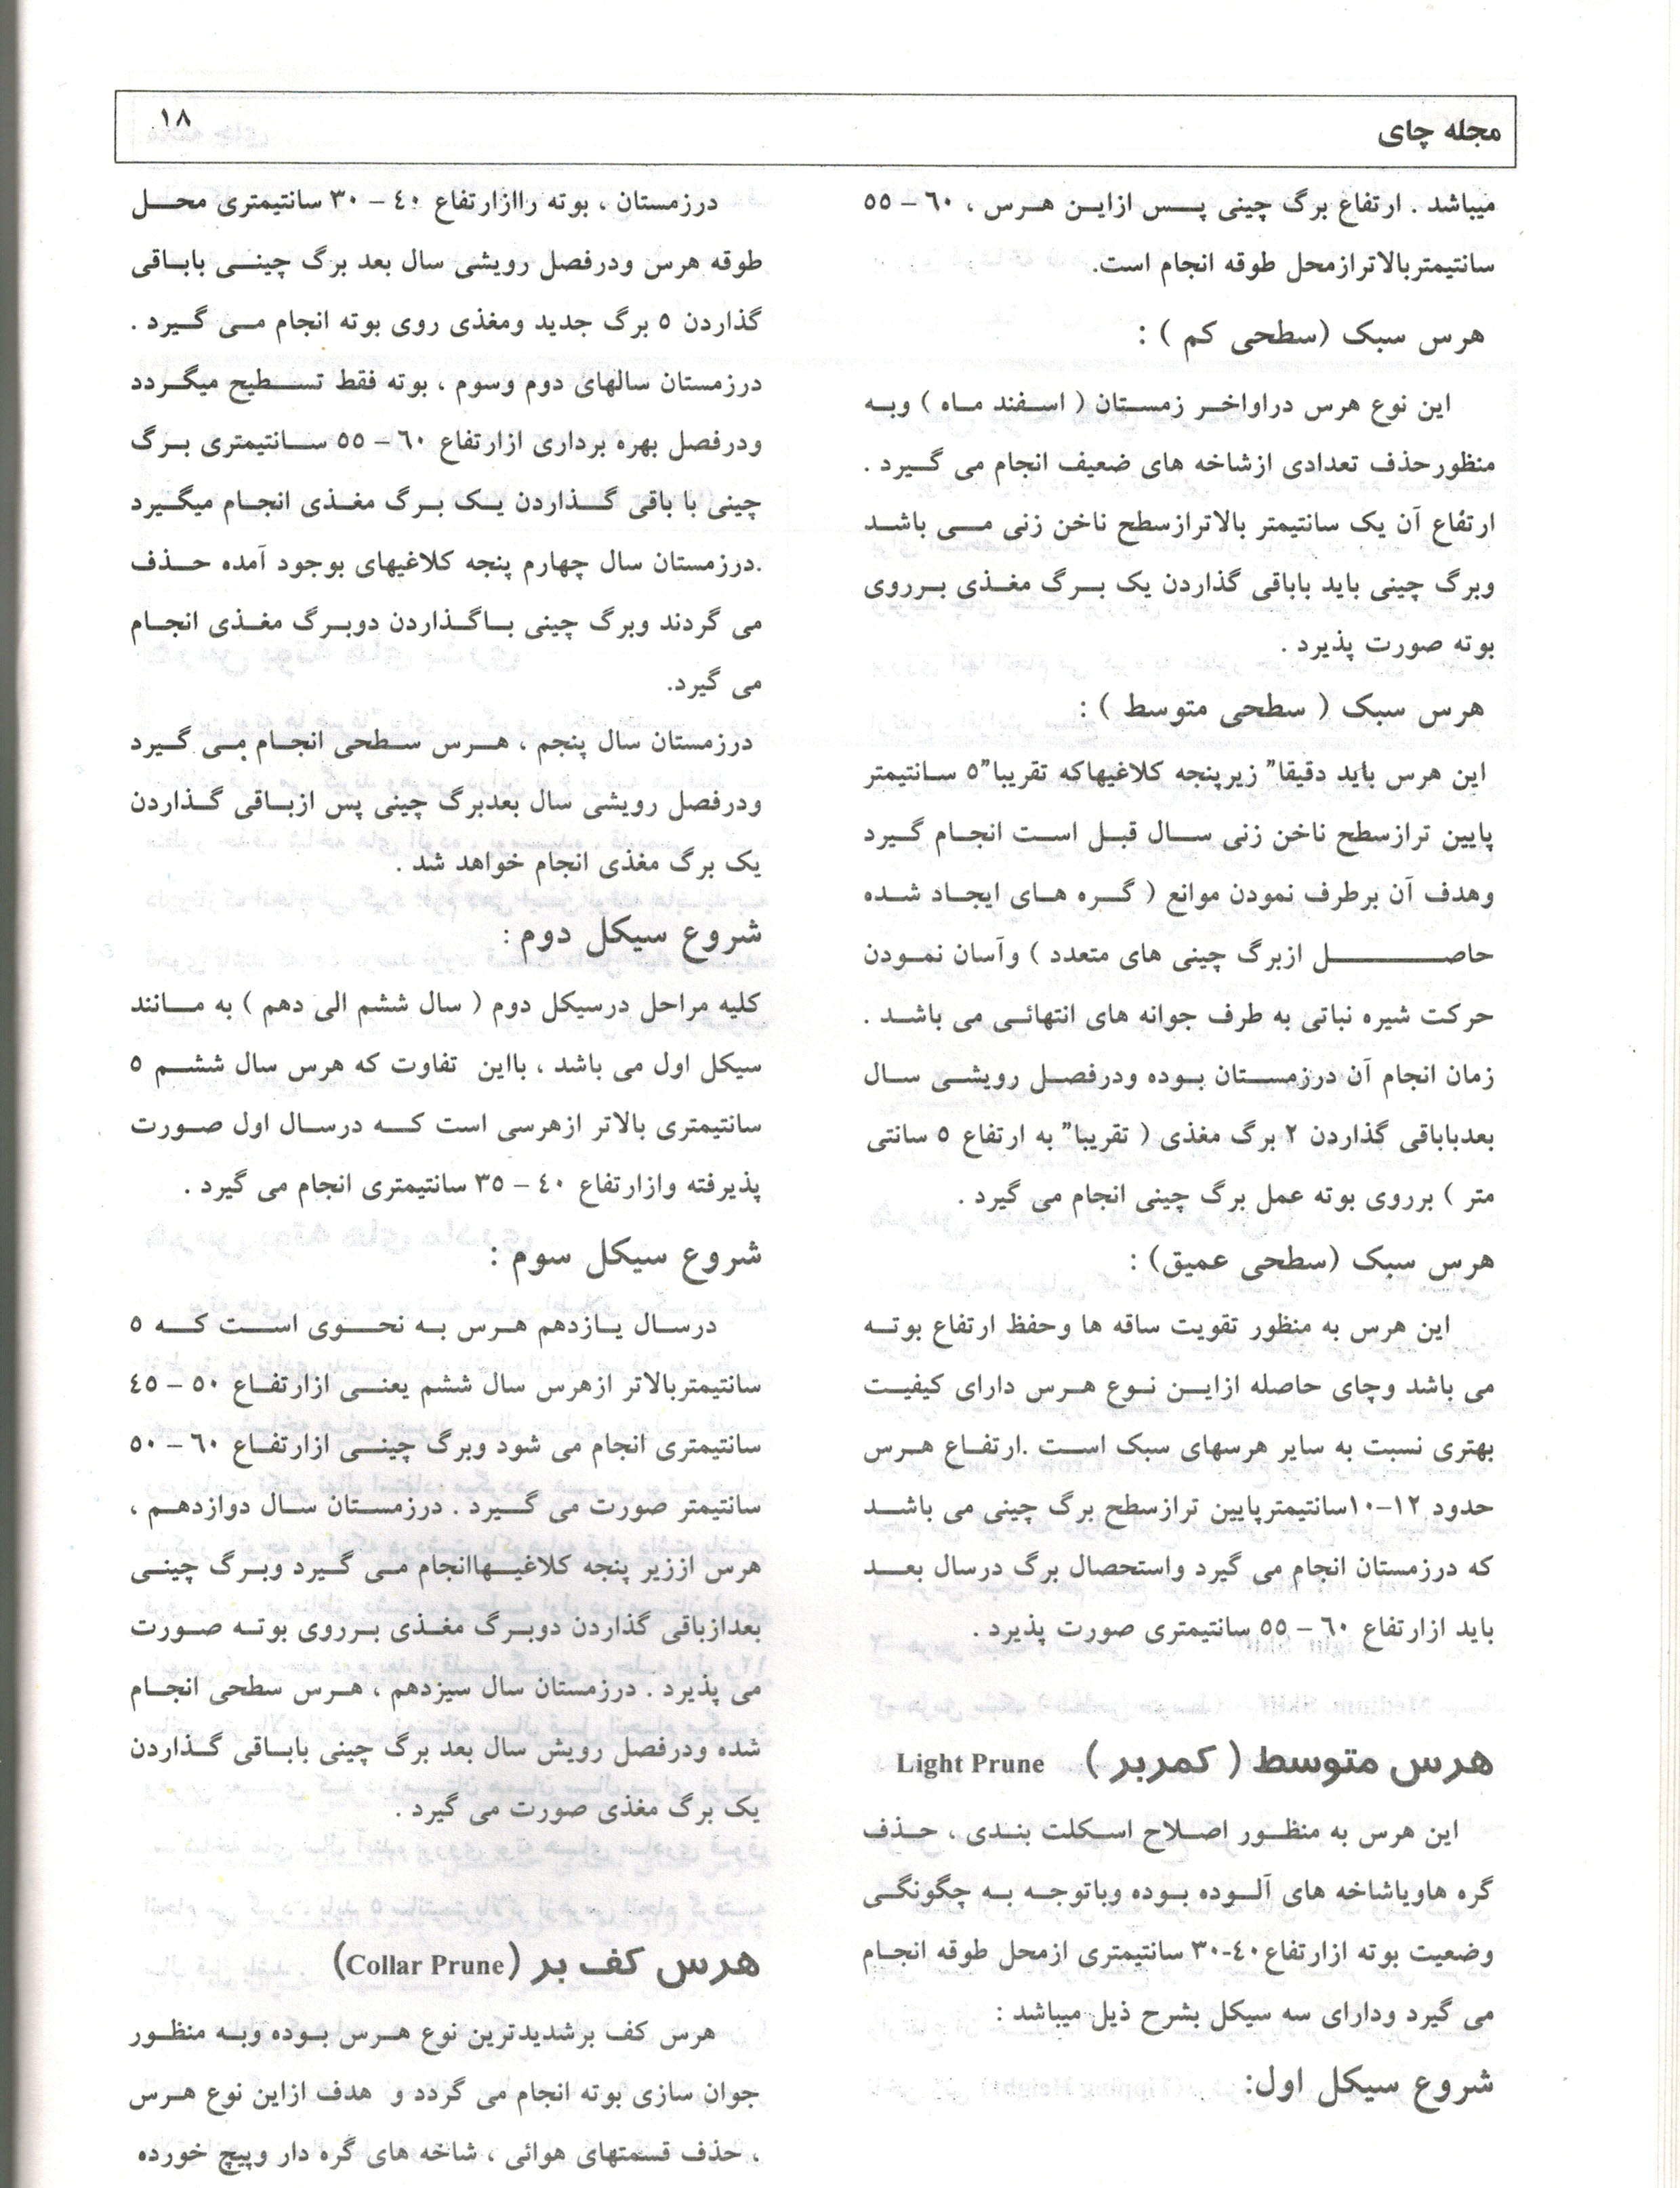 مجله چای
۱۸
میباشد . ارتفاع برگ چینی پس ازاین هرس ، ٦٠ – ٥٥
سانتیمتربالاترازمحل طوقه انجام است.
هرس سبک (سطحی کم ) :
این نوع هرس دراواخر زمستان ( اسفند ماه ) وبه
منظورحذف تعدادی ازشاخه های ضعیف انجام می گیرد .
ارتفاع آن یک سانتیمتر بالاترازسطح ناخن زنی می باشد
وبرگ چینی باید باباقی گذاردن یک برگ مغذی برروی
بوته صورت پذیرد .
هرس سبک ( سطحی متوسط ) :
این هرس باید دقیقا" زیرپنجه کلاغیهاکه تقریبا"٥ سانتیمتر
پایین ترازسطح ناخن زنی سال قبل است انجام گیرد
وهدف آن برطرف نمودن موانع ( گره های ایجاد شده
حاصل ازبرگ چینی های متعدد ) وآسان نمودن
حرکت شیره نباتی به طرف جوانه های انتهائی می باشد .
زمان انجام آن درزمستان بوده ودرفصل رویشی سال
بعدباباقی گذاردن ۲ برگ مغذی ( تقریبا" به ارتفاع ٥ سانتی
متر ) برروی بوته عمل برگ چینی انجام می گیرد .
هرس سبک (سطحی عمیق) :
این هرس به منظور تقویت ساقه ها وحفظ ارتفاع بوته
می باشد وچای حاصله ازاین نوع هرس دارای کیفیت
بهتری نسبت به سایر هرسهای سبک است .ارتفاع هرس
حدود ۱۲-۱۰سانتیمترپایین ترازسطح برگ چینی می باشد
که درزمستان انجام می گیرد واستحصال برگ درسال بعد
باید ازارتفاع ٦٠ – ٥٥ سانتیمتری صورت پذیرد .
هرس متوسط ( کمربر ) Light Prune
این هرس به منظور اصلاح اسکلت بندی ، حذف
گره هاویاشاخه های آلوده بوده وباتوجه به چگونگی
وضعیت بوته ازارتفاع٤٠-٣٠ سانتیمتری ازمحل طوقه انجام
می گیرد ودارای سه سیکل بشرح ذیل میباشد :
شروع سیکل اول:
درزمستان ، بوته راازارتفاع ٤٠ – ٣٠ سانتیمتری محل
طوقه هرس ودرفصل رویشی سال بعد برگ چینی باباقی
گذاردن ٥ برگ جدید ومغذی روی بوته انجام می گیرد .
درزمستان سالهای دوم وسوم ، بوته فقط تسطیح میگردد
ودرفصل بهره برداری ازارتفاع ٦٠ – ٥٥ سانتیمتری برگ
چینی با باقی گذاردن یک برگ مغذی انجام میگیرد
.درزمستان سال چهارم پنجه کلاغیهای بوجود آمده حذف
می گردند وبرگ چینی باگذاردن دوبرگ مغذی انجام
می گیرد.
درزمستان سال پنجم ، هرس سطحی انجام می گیرد
ودرفصل رویشی سال بعدبرگ چینی پس ازباقی گذاردن
یک برگ مغذی انجام خواهد شد .
شروع سیکل دوم :
کلیه مراحل درسیکل دوم ( سال ششم الی دهم ) به مانند
سیکل اول می باشد ، بااین تفاوت که هرس سال ششم ٥
سانتیمتری بالاتر ازهرسی است که درسال اول صورت
پذیرفته وازارتفاع ٤٠ – ٣٥ سانتیمتری انجام می گیرد .
شروع سیکل سوم :
درسال یازدهم هرس به نحوی است که ٥
سانتیمتربالاتر ازهرس سال ششم یعنی ازارتفاع ٥٠ – ٤٥
سانتیمتری انجام می شود وبرگ چینی ازارتفاع ٦٠ – ٥٠
سانتیمتر صورت می گیرد . درزمستان سال دوازدهم ،
هرس اززیر پنجه کلاغیهاانجام می گیرد وبرگ چینی
بعدازباقی گذاردن دوبرگ مغذی برروی بوته صورت
می پذیرد . درزمستان سال سیزدهم ، هرس سطحی انجام
شده ودرفصل رویش سال بعد برگ چینی باباقی گذاردن
یک برگ مغذی صورت می گیرد .
هرس کف بر (Collar Prune)
هرس کف برشدیدترین نوع هرس بوده وبه منظور
جوان سازی بوته انجام می گردد و هدف ازاین نوع هرس
، حذف قسمتهای هوائی ، شاخه های گره دار وپیچ خورده